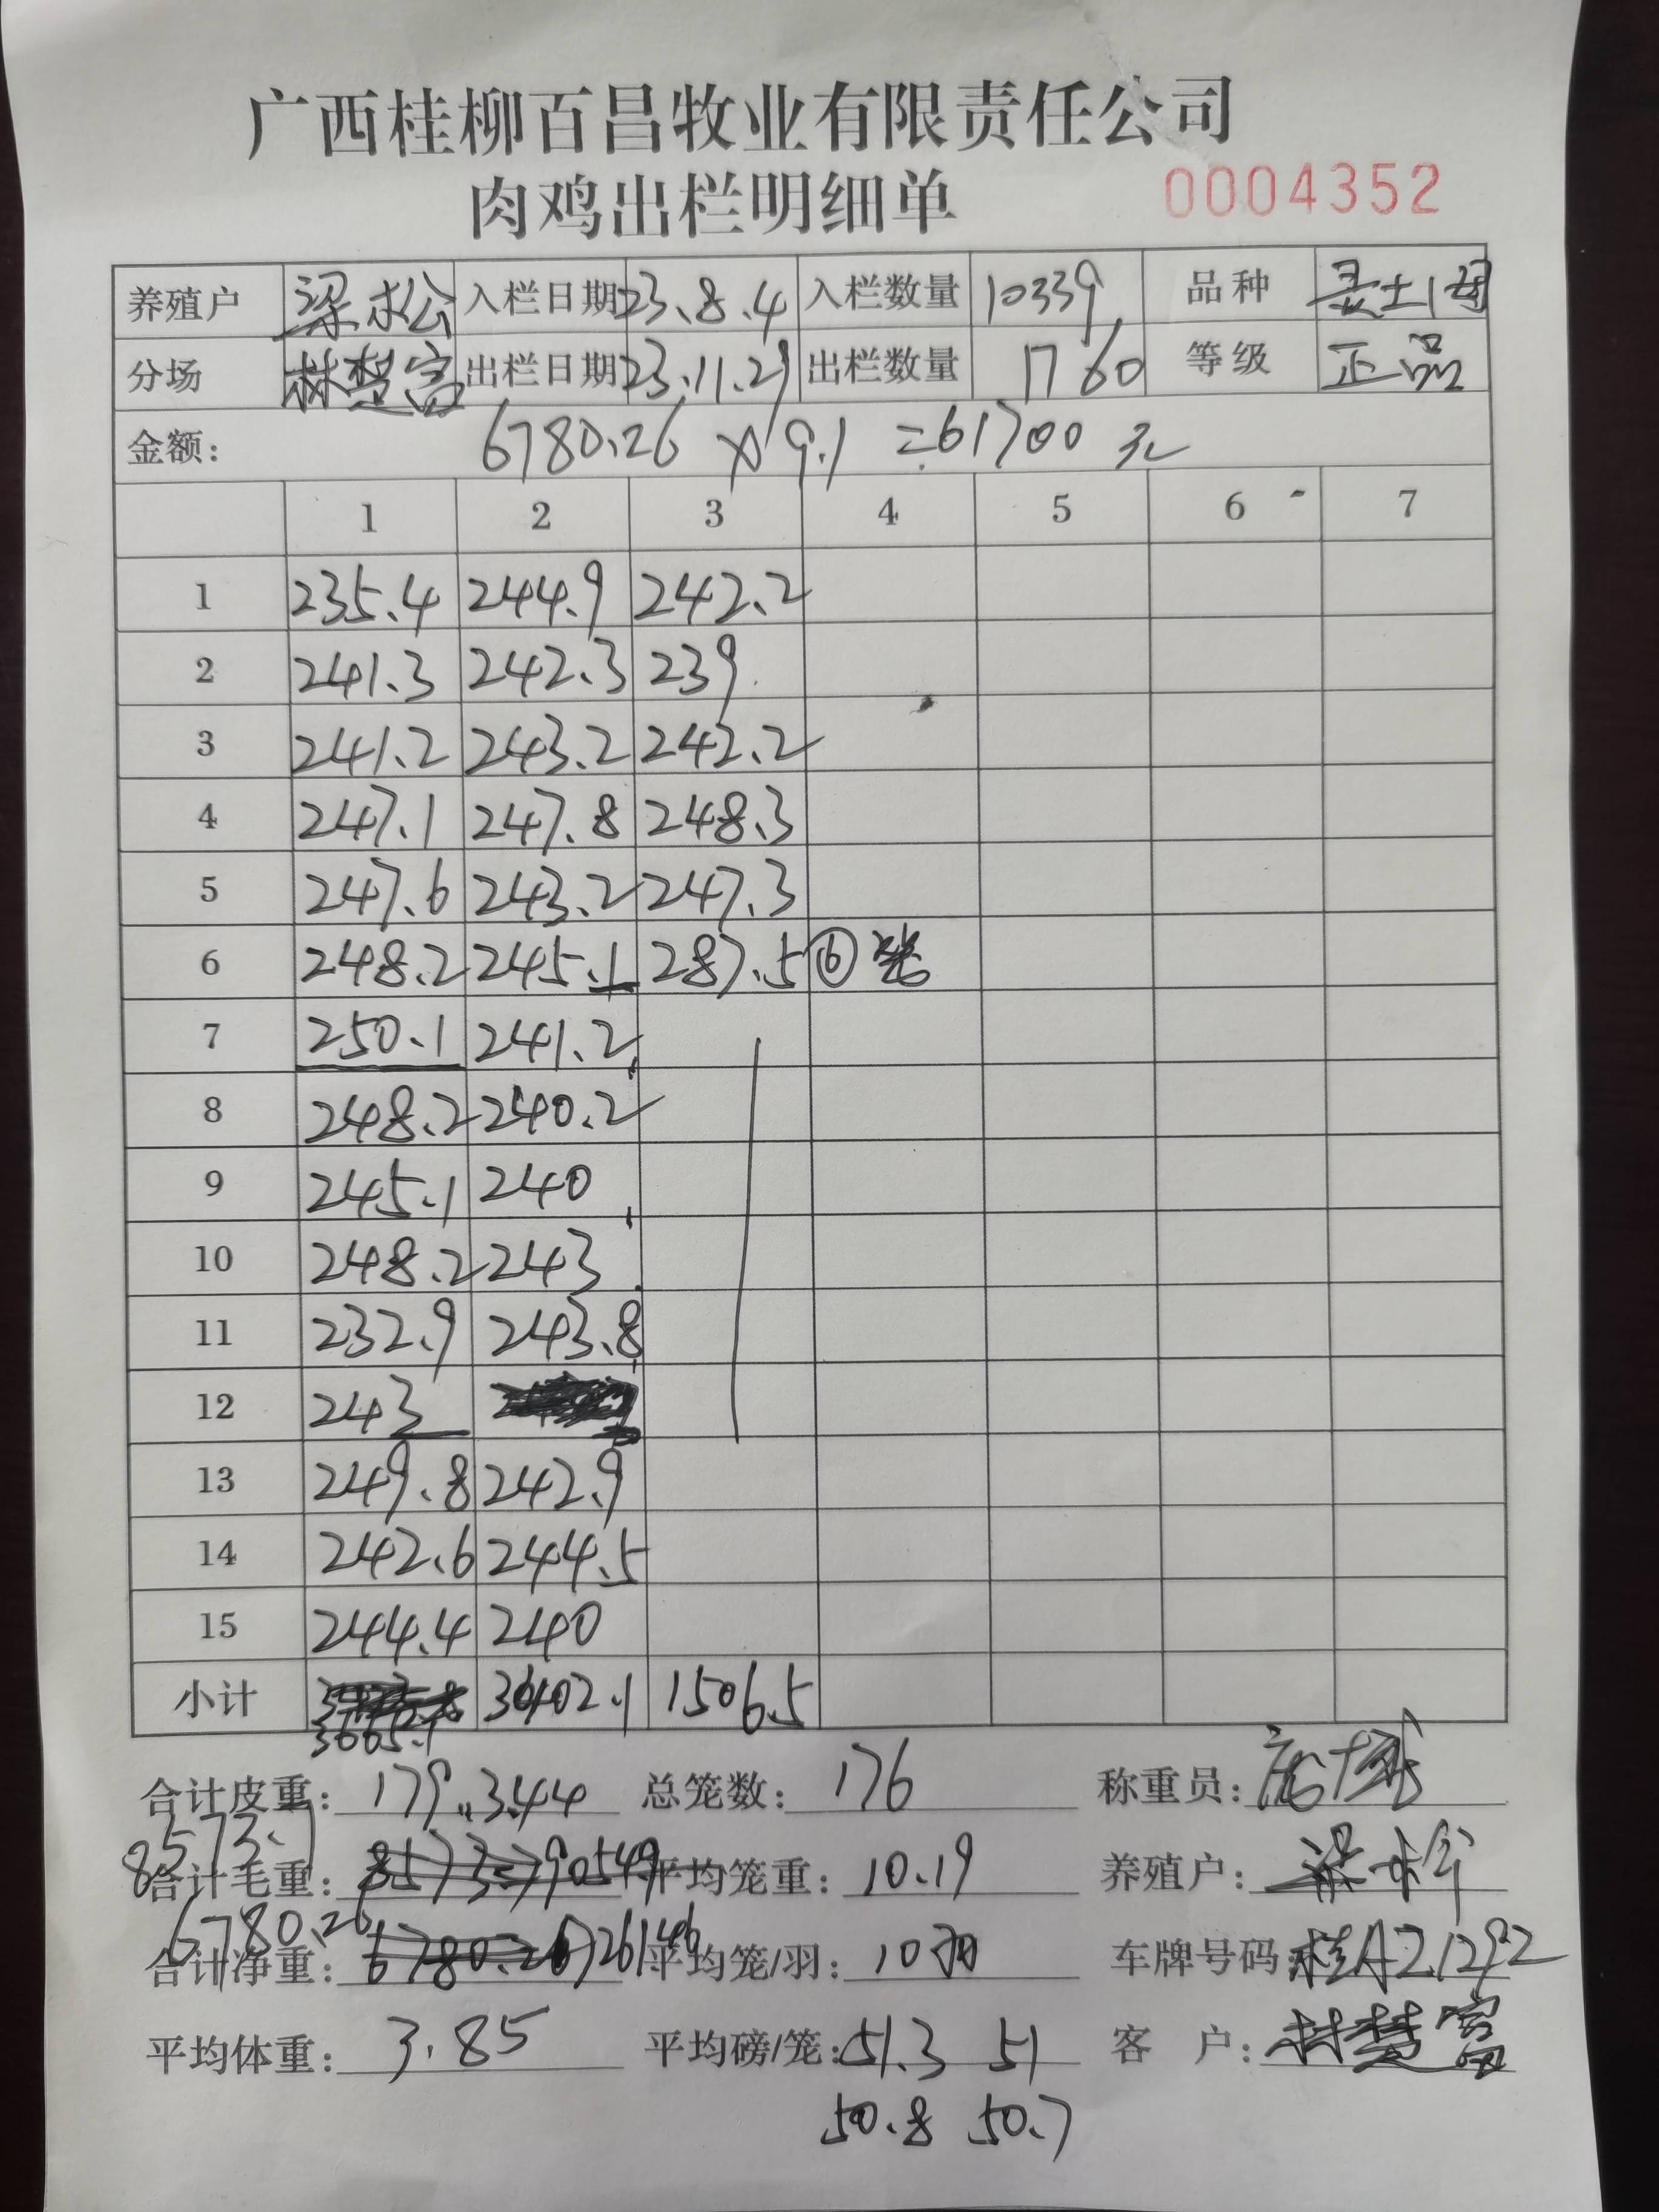 广西桂柳百昌牧业有限责任公司
肉鸡出栏明细单 0004352
养殖户 梁水松 入栏日期 23.8.4 入栏数量 10339 品种 灵土1号
分场 林楚富 出栏日期 23.11.29 出栏数量 1760 等级 正品
金额: 6780.26 × 9.1 = 61700 元
1 2 3 4 5 6 7
1 235.4 244.9 242.2
2 241.3 242.3 239
3 241.2 243.2 242.2
4 247.1 247.8 248.3
5 247.6 243.2 247.3
6 248.2 245.1 287.5 ⑥笼
7 250.1 241.2
8 248.2 240.2
9 245.1 240
10 248.2 243
11 232.9 243.8
12 243
13 249.8 242.9
14 242.6 244.5
15 244.4 240
小计 3665.1 3402.1 1506.5
合计皮重: 179.344 总笼数: 176 称重员:
8573.7
合计毛重: 平均笼重: 10.19 养殖户:
6780.26
合计净重: 平均笼/羽: 10羽 车牌号码: 桂AZ1292
平均体重: 3.85 平均磅/笼: 51.3 51 客户: 林楚富
50.8 50.7